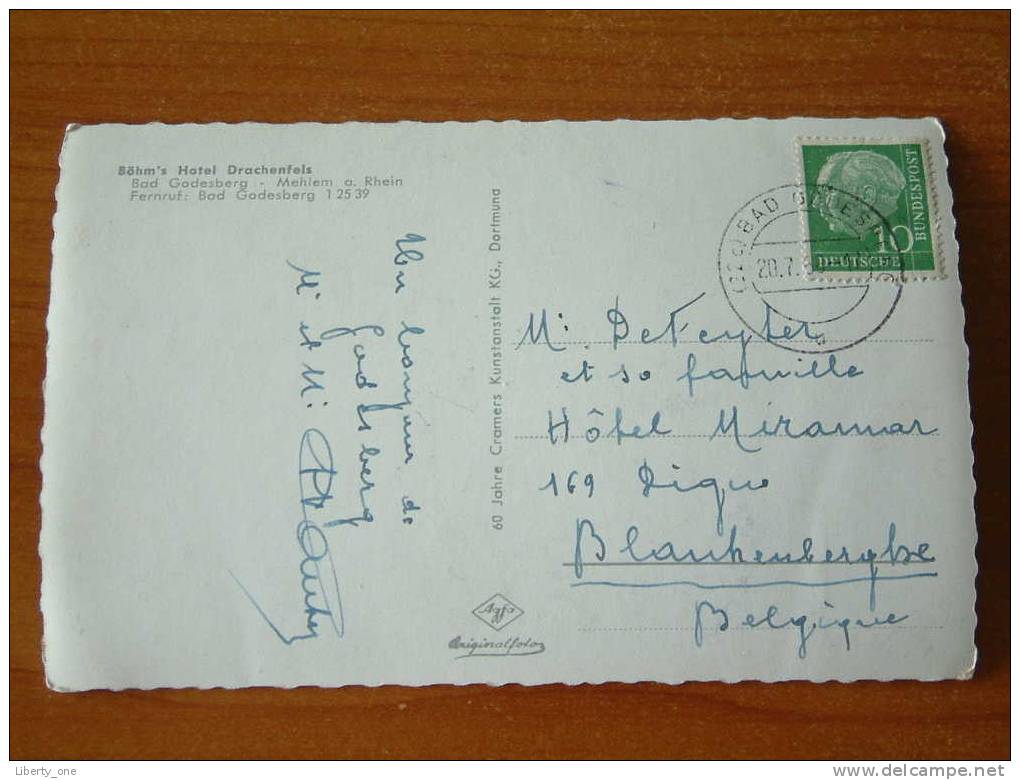 Böhm's Hotel Drachenfels
Bad Godesberg - Mehlem a. Rhein
Fernruf: Bad Godesberg 12539
Un bonjour de
Godesberg
Mr et Mr
60 Jahre Cramers Kunstanstalt KG., Dortmund
Agfa
Originalfoto
10
BUNDESPOST
DEUTSCHE
(22c) BAD GODESBERG
20.7.
a
Mr DeFeyter
et sa famille
Hôtel Miramar
169 Digue
Blankenberghe
Belgique
Liberty_one
www.delcampe.net